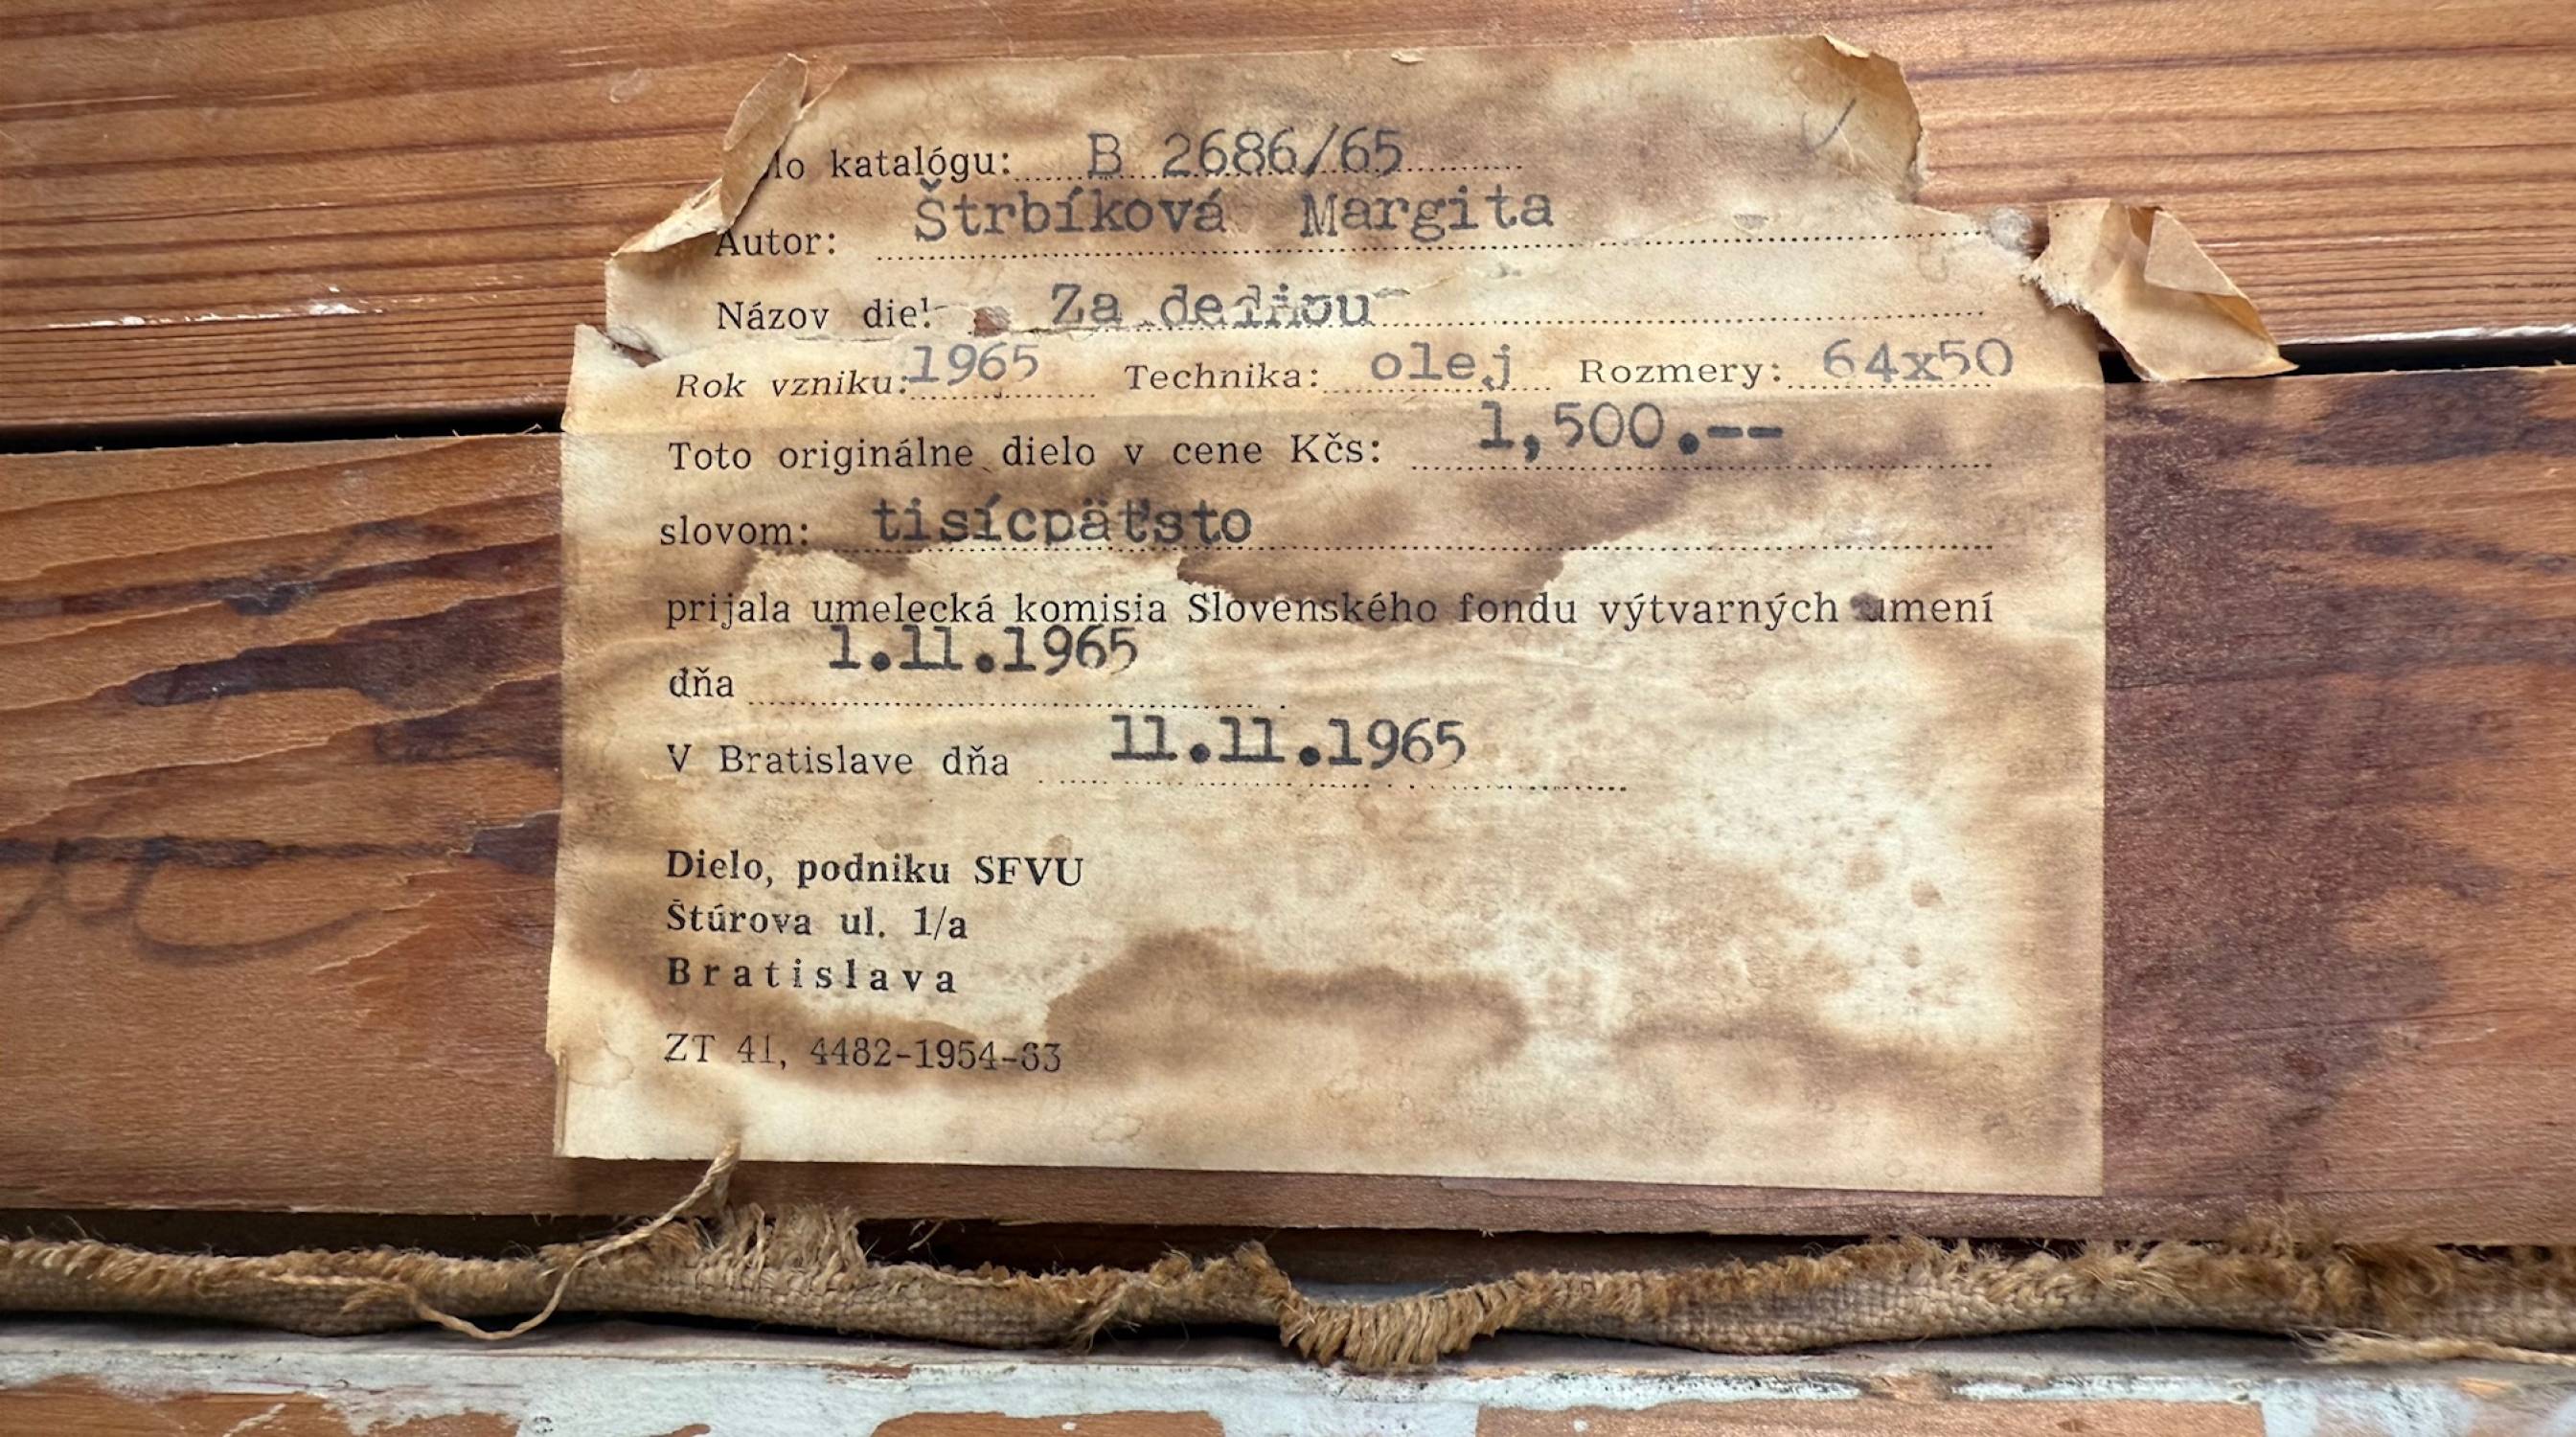 lo katalógu: B 2686/65
Autor: Štrbíková Margita
Názov diel Za dedinou
Rok vzniku: 1965 Technika: olej Rozmery: 64x50
Toto originálne dielo v cene Kčs: 1,500.--
slovom: tisícpäťsto
prijala umelecká komisia Slovenského fondu výtvarných umení
dňa 1.11.1965
V Bratislave dňa 11.11.1965
Dielo, podniku SFVU
Štúrova ul. 1/a
Bratislava
ZT 41, 4482-1954-63